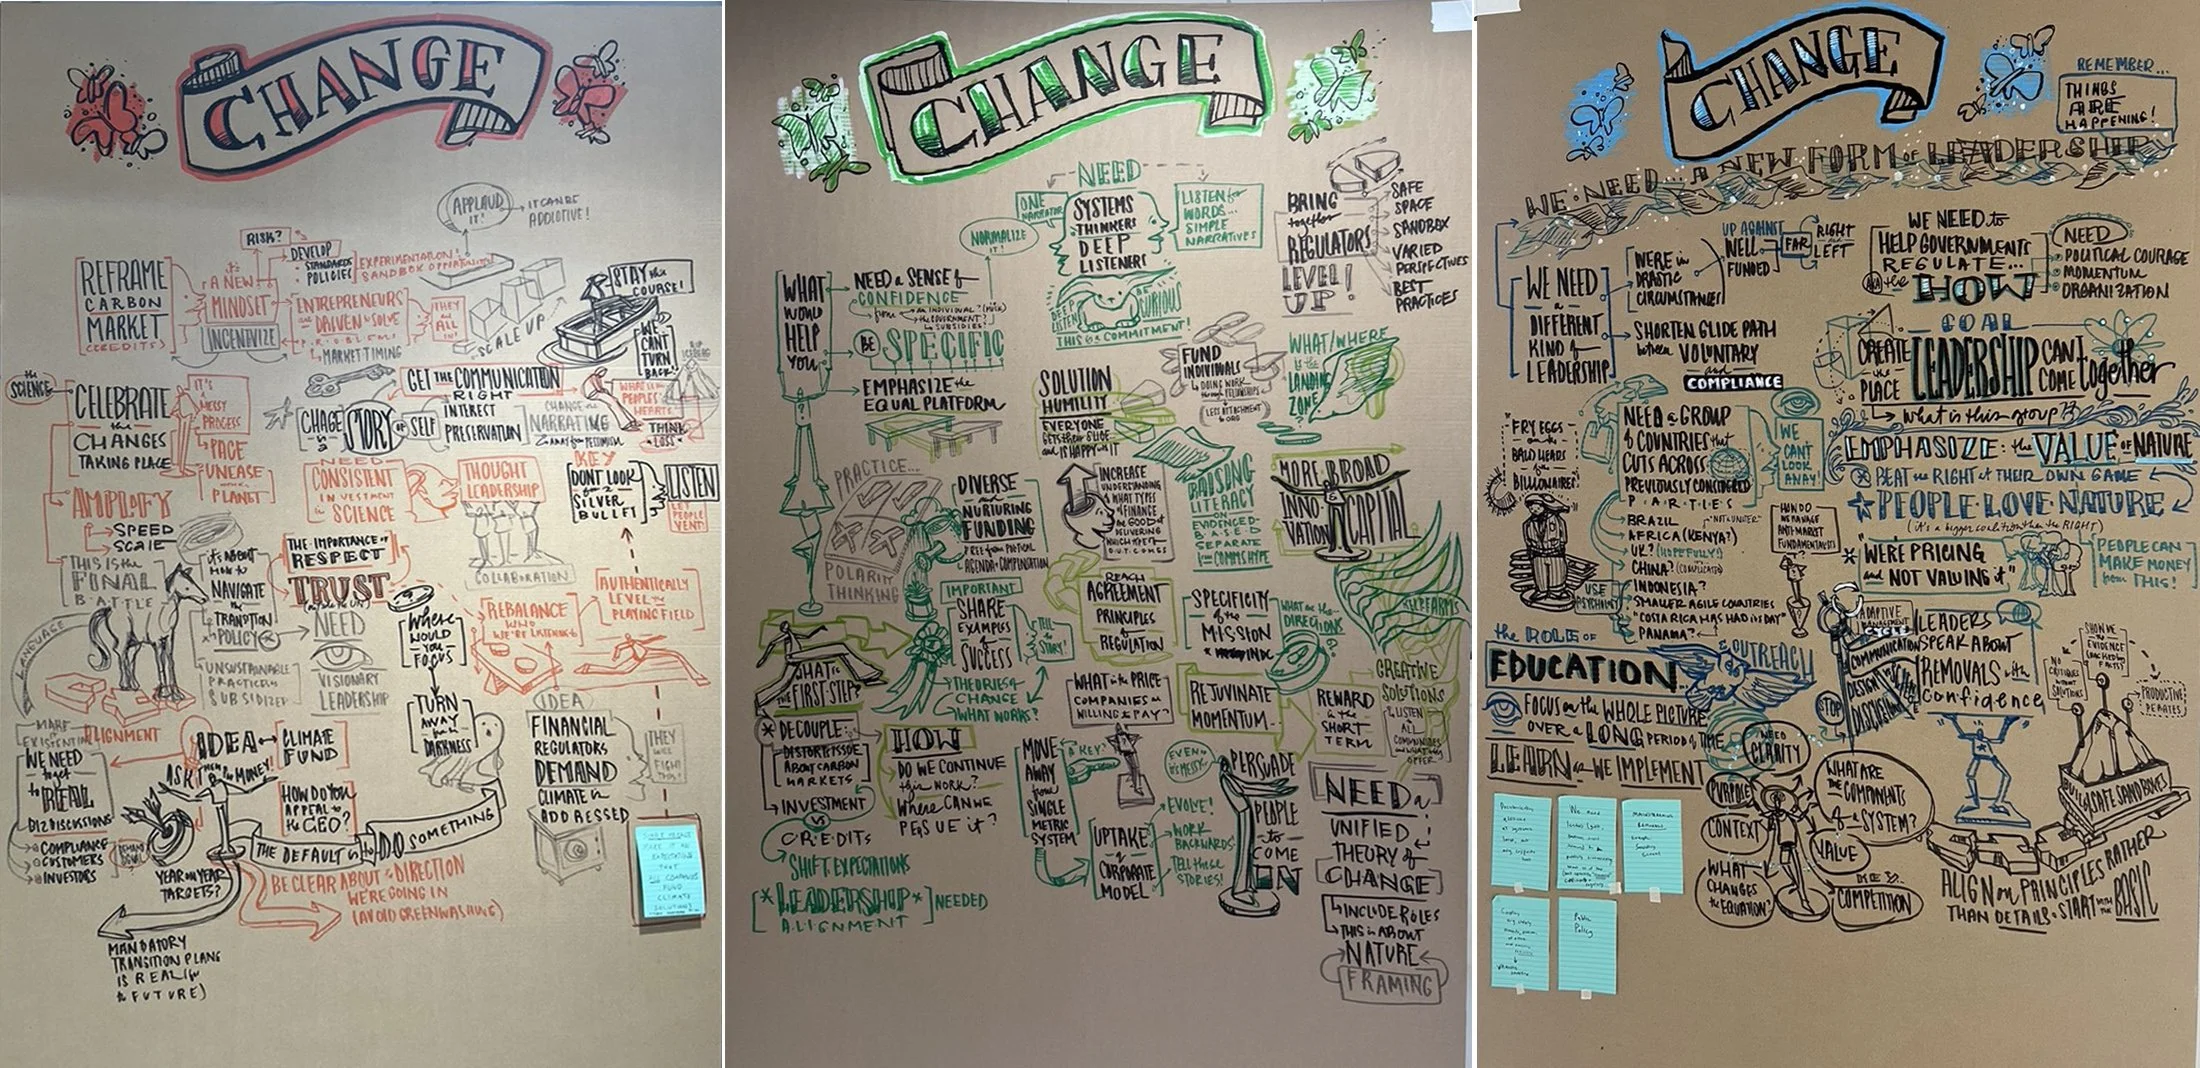 CHANGE
APPLAUD
IT!
IT CAN BE
ADDICTIVE!
RISK?
DEVELOP
STANDARDS
POLICIES
EXPERIMENTATION!
SANDBOX OPPORTUNITIES
REFRAME
CARBON
MARKET
(CREDITS)
IT'S
A NEW
MINDSET
INCENTIVIZE
ENTREPRENEURS
are DRIVEN to SOLVE
PROBLEMS
MARKET TIMING
THEY
are
ALL
IN!
SCALE UP
STAY the
COURSE!
WE
CAN'T
TURN
BACK!
the
SCIENCE
CELEBRATE
the
CHANGES
TAKING PLACE
IT'S
a
MESSY
PROCESS
PACE
UNEASE
PLANET
GET the COMMUNICATION
RIGHT
CHAGE
is a
STORY
of SELF
INTEREST
PRESERVATION
CHANGE the
NARRATING
AWAY from PESSIMISM
WHAT is in the
PEOPLES'
HEARTS
THINK
LOSS
AMPLIFY
SPEED
SCALE
NEED
CONSISTENT
INVESTMENT
in SCIENCE
THOUGHT
LEADERSHIP
COLLABORATION
KEY
DON'T LOOK
for a
SILVER
BULLET
LISTEN
LET
PEOPLE
VENT!
THIS is the
FINAL
BATTLE
it's ABOUT
HOW to
NAVIGATE
the
TRANSITION
POLICY
THE IMPORTANCE of
RESPECT
TRUST
NEED
VISIONARY
LEADERSHIP
LANGUAGE
UNSUSTAINABLE
PRACTICES
SUBSIDIZED
Where
WOULD
YOU
FOCUS
REBALANCE
WHO
WE'RE LISTENING to
AUTHENTICALLY
LEVEL the
PLAYING FIELD
TURN
AWAY
from the
DARKNESS
IDEA
FINANCIAL
REGULATORS
DEMAND
CLIMATE is
ADDRESSED
THEY
WILL
FIGHT
THIS!
ALIGNMENT
WE NEED
to get
to REAL
BIZ DISCUSSIONS
COMPLIANCE
CUSTOMERS
INVESTORS
IDEA
CLIMATE
FUND
ASK THEM for MONEY!
HOW DO YOU
APPEAL to
the CEO?
THE DEFAULT is to DO SOMETHING
YEAR on YEAR
TARGETS?
BE CLEAR ABOUT the DIRECTION
WE'RE GOING IN
(AVOID GREENWASHING)
MANDATORY
TRANSITION PLANS
IS REAL(in
the FUTURE)
CHANGE
NEED
ONE
NARRATOR
NORMALIZE
IT!
SYSTEMS
THINKERS
DEEP
LISTENERS
LISTEN for
WORDS...
SIMPLE
NARRATIVES
BRING
together
REGULATORS
LEVEL
UP!
SAFE
SPACE
SANDBOX
VARIED
PERSPECTIVES
BEST
PRACTICES
WHAT
WOULD
HELP
YOU
NEED a SENSE of
CONFIDENCE
from
AN INDIVIDUAL?
the GOVERNMENT?
SUBSIDIES?
BE
SPECIFIC
EMPHASIZE the
EQUAL PLATFORM
DEEP
LISTEN
BE
CURIOUS
THIS is a COMMITMENT!
SOLUTION
HUMILITY
EVERYONE
GETS their SLICE
and is HAPPY with IT
FUND
INDIVIDUALS
DOING WORK
through FELLOWSHIPS
(LESS ATTACHMENT
to ORG)
WHAT/WHERE
is the
LANDING
ZONE
PRACTICE...
POLARITY
THINKING
DIVERSE
and
NURTURING
FUNDING
FREE from POLITICAL
AGENDA & COMPENSATION
INCREASE
UNDERSTANDING
of WHAT TYPES
of FINANCE
are GOOD at
DELIVERING
WHICH TYPE of
OUTCOMES
RAISING
LITERACY
ON
EVIDENCED-
BASED
SEPARATE
from COMMS HYPE
MORE BROAD
INNOVATION
CAPITAL
IMPORTANT
SHARE
EXAMPLES
of
SUCCESS
TELL
the
STORY!
THEORIES of
CHANGE
WHAT WORKS?
REACH
AGREEMENT
on
PRINCIPLES
of
REGULATION
SPECIFICITY
of the
MISSION
INDC
WHAT are the
DIRECTIONS
WHAT is
the FIRST STEP?
DECOUPLE
DISTORT ISSUE
ABOUT CARBON
MARKETS
INVESTMENT
vs
CREDITS
SHIFT EXPECTATIONS
*LEADERSHIP* NEEDED
ALIGNMENT
HOW
DO WE CONTINUE
this WORK?
Where CAN WE
PERSUE it?
WHAT is the PRICE
COMPANIES are
WILLING to PAY?
REJUVINATE
MOMENTUM
REWARD
in the
SHORT
TERM
CREATIVE
SOLUTIONS
LISTEN
to ALL
COMMUNITIES
and WHAT they
OFFER
MOVE
AWAY
from
SINGLE
METRIC
SYSTEM
a KEY?
EVEN if
it's MESSY
PERSUADE
PEOPLE
to
COME
ON
UPTAKE
of
CORPORATE
MODEL
EVOLVE!
WORK
BACKWARDS
TELL these
STORIES!
NEED a
UNIFIED
THEORY of
CHANGE
INCLUDE ROLES
THIS is ABOUT
NATURE
FRAMING
CHANGE
REMEMBER...
THINGS
ARE
HAPPENING!
WE NEED... A NEW FORM of LEADERSHIP
WE NEED
a
DIFFERENT
KIND of
LEADERSHIP
WE'RE in
DRASTIC
CIRCUMSTANCES
UP AGAINST
WELL
FUNDED
FAR
RIGHT
and
LEFT
SHORTEN GLIDE PATH
between VOLUNTARY
and
COMPLIANCE
WE NEED to
HELP GOVERNMENTS
REGULATE...
AKA the HOW
NEED
POLITICAL COURAGE
MOMENTUM
ORGANIZATION
GOAL
CREATE
the
PLACE
LEADERSHIP CAN
COME together
What is this group??
FRY EGGS
on the
BALD HEADS
of the
BILLIONAIRES
NEED a GROUP
of COUNTRIES that
CUTS ACROSS
PREVIOUSLY CONSIDERED
PARTIES
WE
CAN'T
LOOK
AWAY!
BRAZIL
AFRICA (KENYA?)
UK? (HOPEFULLY!)
CHINA? (COMPLICATED)
INDONESIA?
SMALLER AGILE COUNTRIES
"COSTA RICA HAS HAD its DAY"
PANAMA?
USE
PSYCHOLOGY
HOW DO
WE MANAGE
ANTI-MARKET
FUNDAMENTALISTS?
EMPHASIZE the VALUE of NATURE
BEAT the RIGHT at THEIR OWN GAME
PEOPLE LOVE NATURE
(it's a bigger coalition than the RIGHT)
"WE'RE PRICING
and NOT VALUING it"
PEOPLE CAN
MAKE MONEY
from THIS!
the ROLE of
EDUCATION
OUTREACH
FOCUS on the WHOLE PICTURE
OVER a LONG PERIOD of TIME
LEARN as WE IMPLEMENT
ADAPTIVE
MANAGEMENT
CYCLE
COMMUNICATION
LEADERS
SPEAK ABOUT
REMOVALS with
Confidence
SHOW ME
the EVIDENCE
(BACKED by
FACTS)
NO
CRITIQUES
WITHOUT
SOLUTIONS
PRODUCTIVE
DEBATES
BUILD SAFE SANDBOXES
STOP
NEED
CLARITY
PURPOSE
CONTEXT
WHAT
CHANGES
the EQUATION?
WHAT ARE
THE COMPONENTS
of a SYSTEM?
VALUE
COMPETITION
ALIGN on PRINCIPLES RATHER
THAN DETAILS • START with the BASIC
Public
Policy